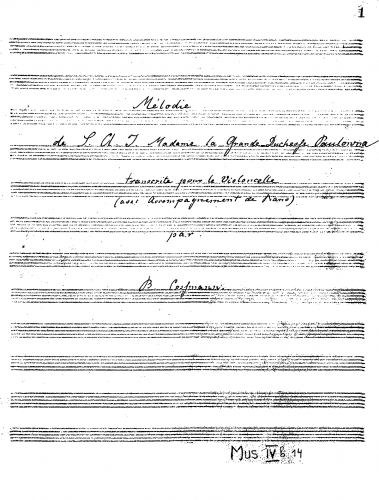 1
Mélodie
de S. A. I. Madame la Grande Duchesse Paulowna
transcrite pour le Violoncelle
(avec accompagnement de Piano)
par
B. Cossmann.
Mus IV b 14